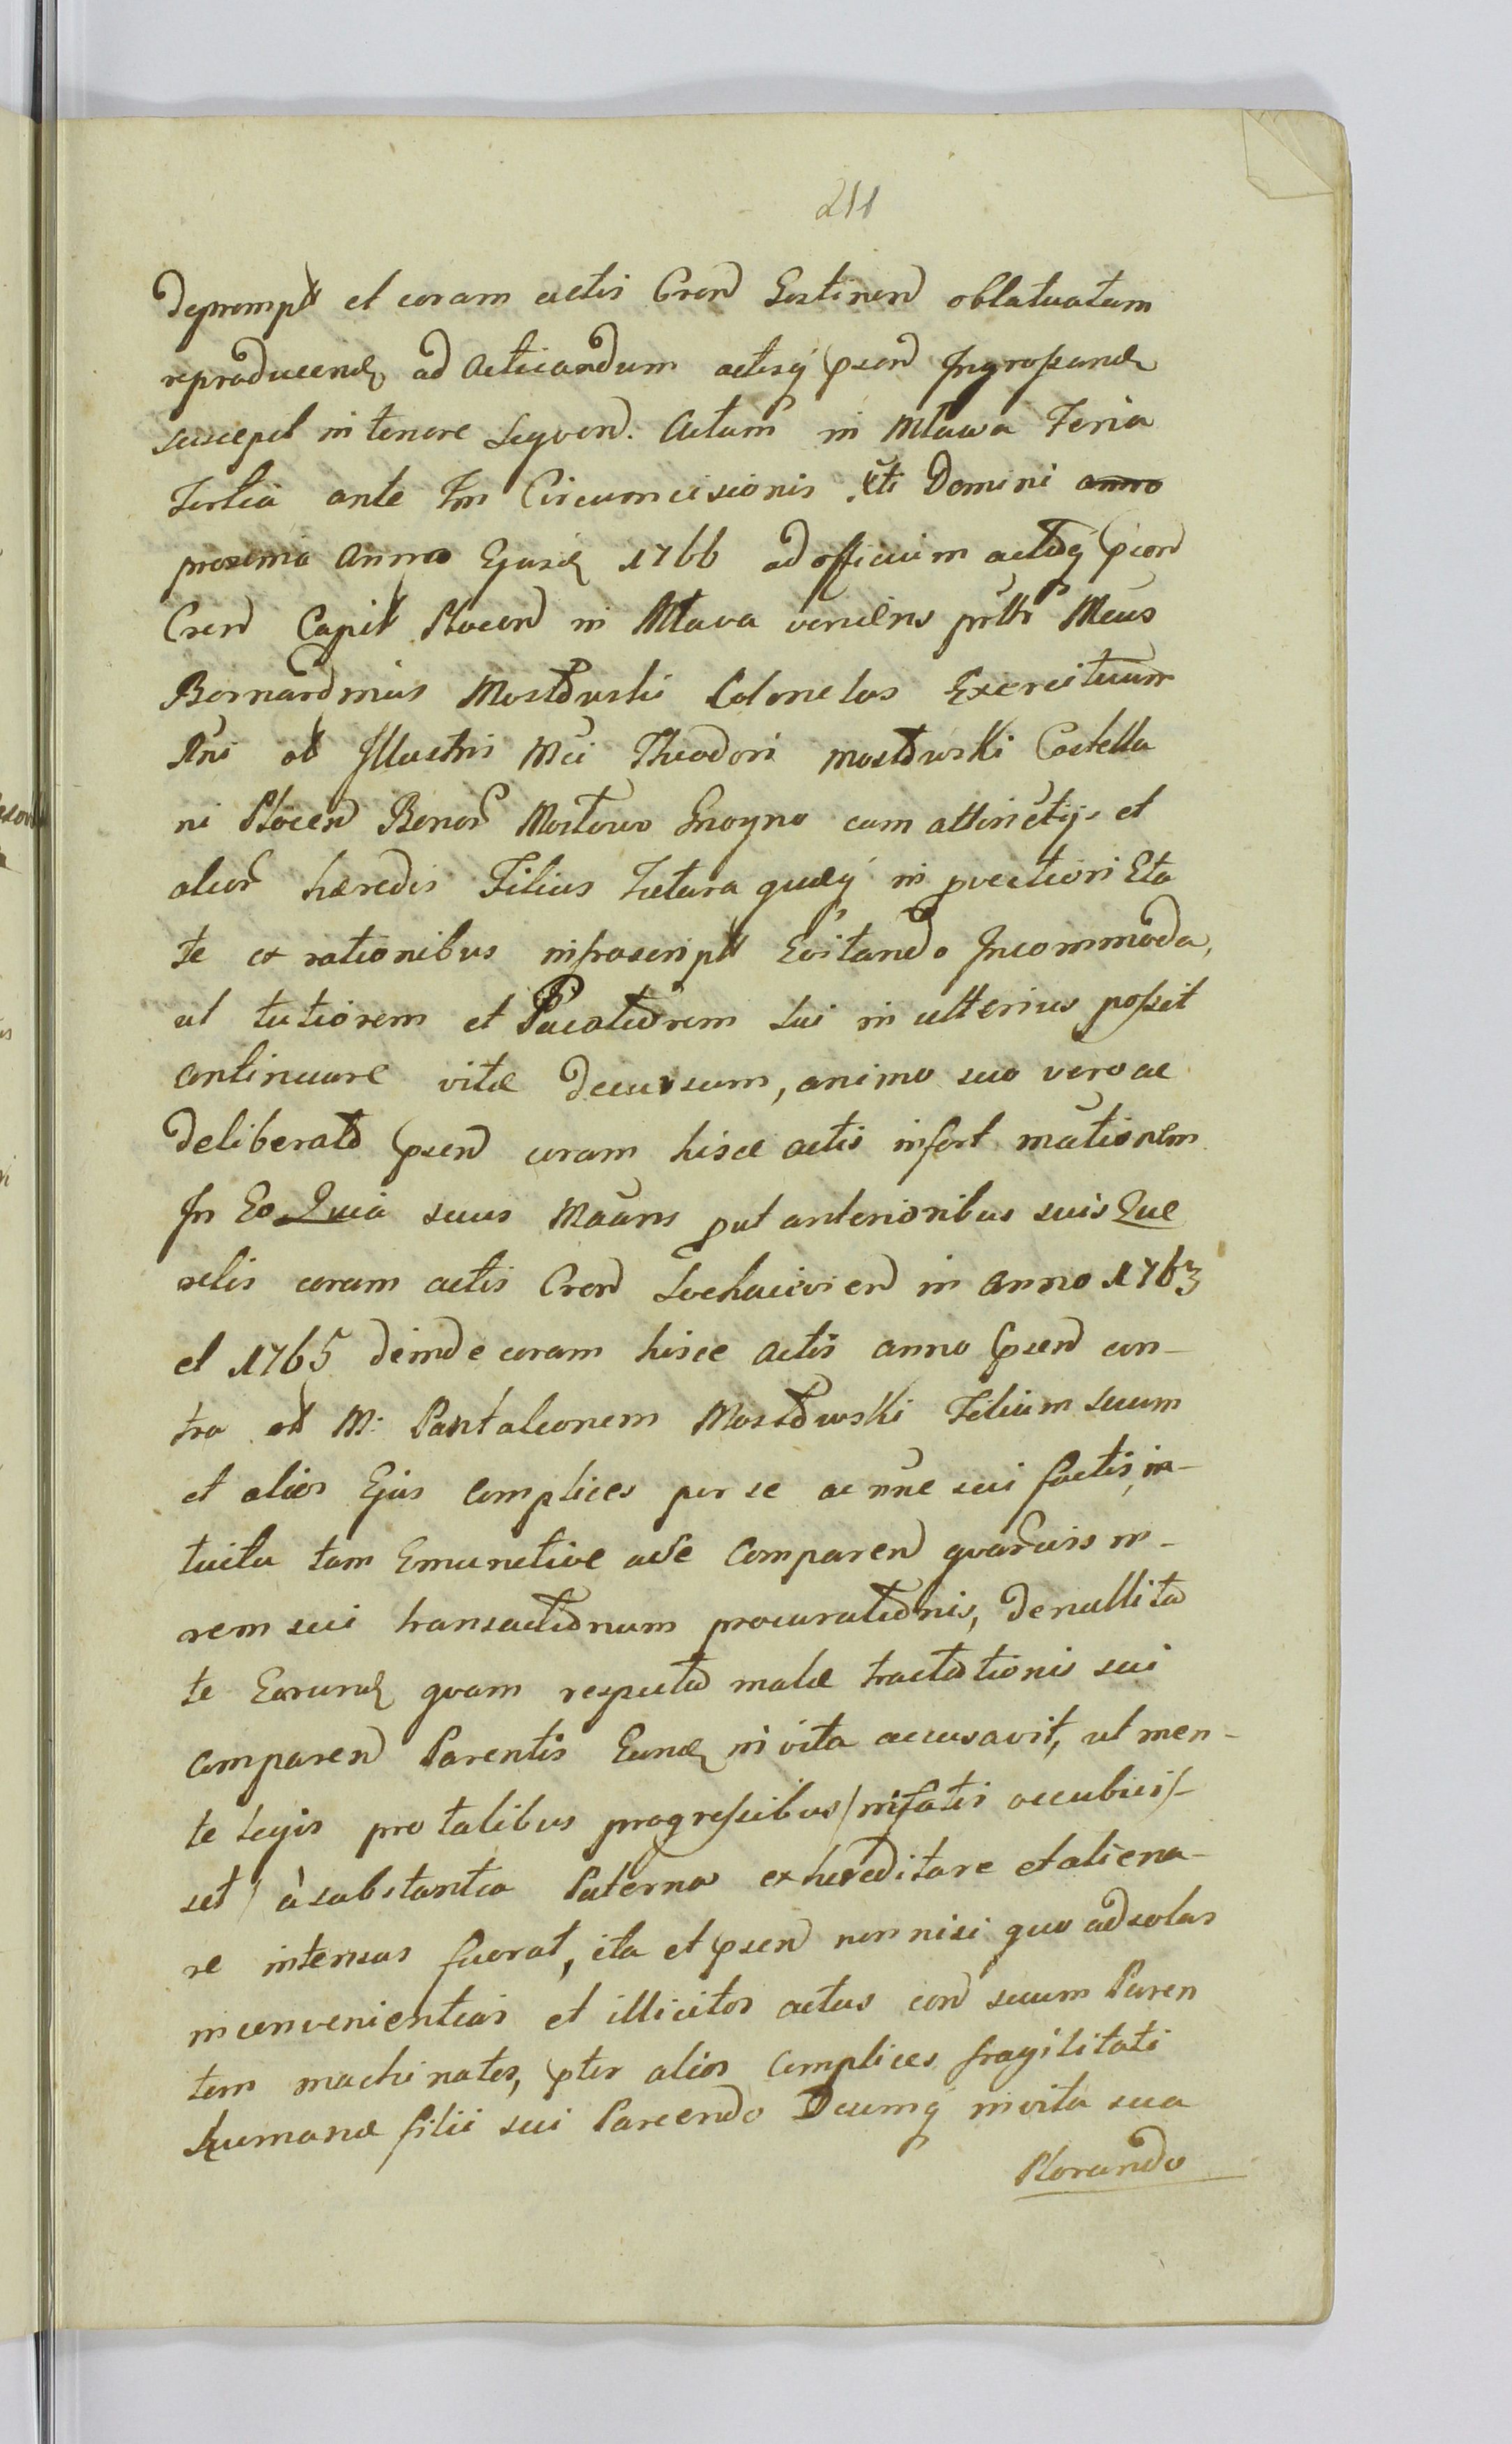 211
deprompt et coram actis Cren Gostinen oblatuatum
reproducend ad Acticandum actisq psen Ingrossand
suscepit in tenore Sequen. Actum in Mława Feria
Tertia ante Fm Circumcisionis Xti Domini anno
proxima Anno Ejusd 1766 ad officium actaq psen
Cren Capit Plocen in Mława veniens prltr Mcus
Bernardinus Mostowski Colonelus Exercituum
Rni ol Illustris Mci Theodori Mostowski Castella
ni Plocen Bonor Mostowo Gnoyno cum attinetijs et
alior hæredis Filius Futura quæq in pvectiori Eta
te ex rationibus infrascript Evitando Incommoda,
ut tutiorem et Pacatiorem sui in ulterius possit
continuare vitæ decursum, animo suo vero ac
deliberato psen coram hisce actis infert mationem
In Eo Quia suus Maans put anterioribus suis Que
relis coram actis Cren Sochaciovien in Anno 1763
et 1765 deinde coram hisce actis anno psen con-
tra ol M: Pantaleonem Mostowski Filium suum
et alios Ejus complices per se ac nne sui factis, in-
tuitu tam Emunctive a se Comparen quarvis in-
rem sui transactionum procurationis, de nullita
te Earund quam respectu malæ tractationis sui
comparen Parentis Eund in vita accusavit, ut men-
te legis pro talibus progressibus / ni fatis occubuis-
set / à substantia Paterna exhæreditare et aliena-
re intensus fuerat, ita et psen non nisi quo ad solas
inconvenientias et illicitos actus con suum Paren
tem machinatos, pter alios Complices fragilitati
humanæ filii sui Parcendo Deumq in vita sua
Plorando